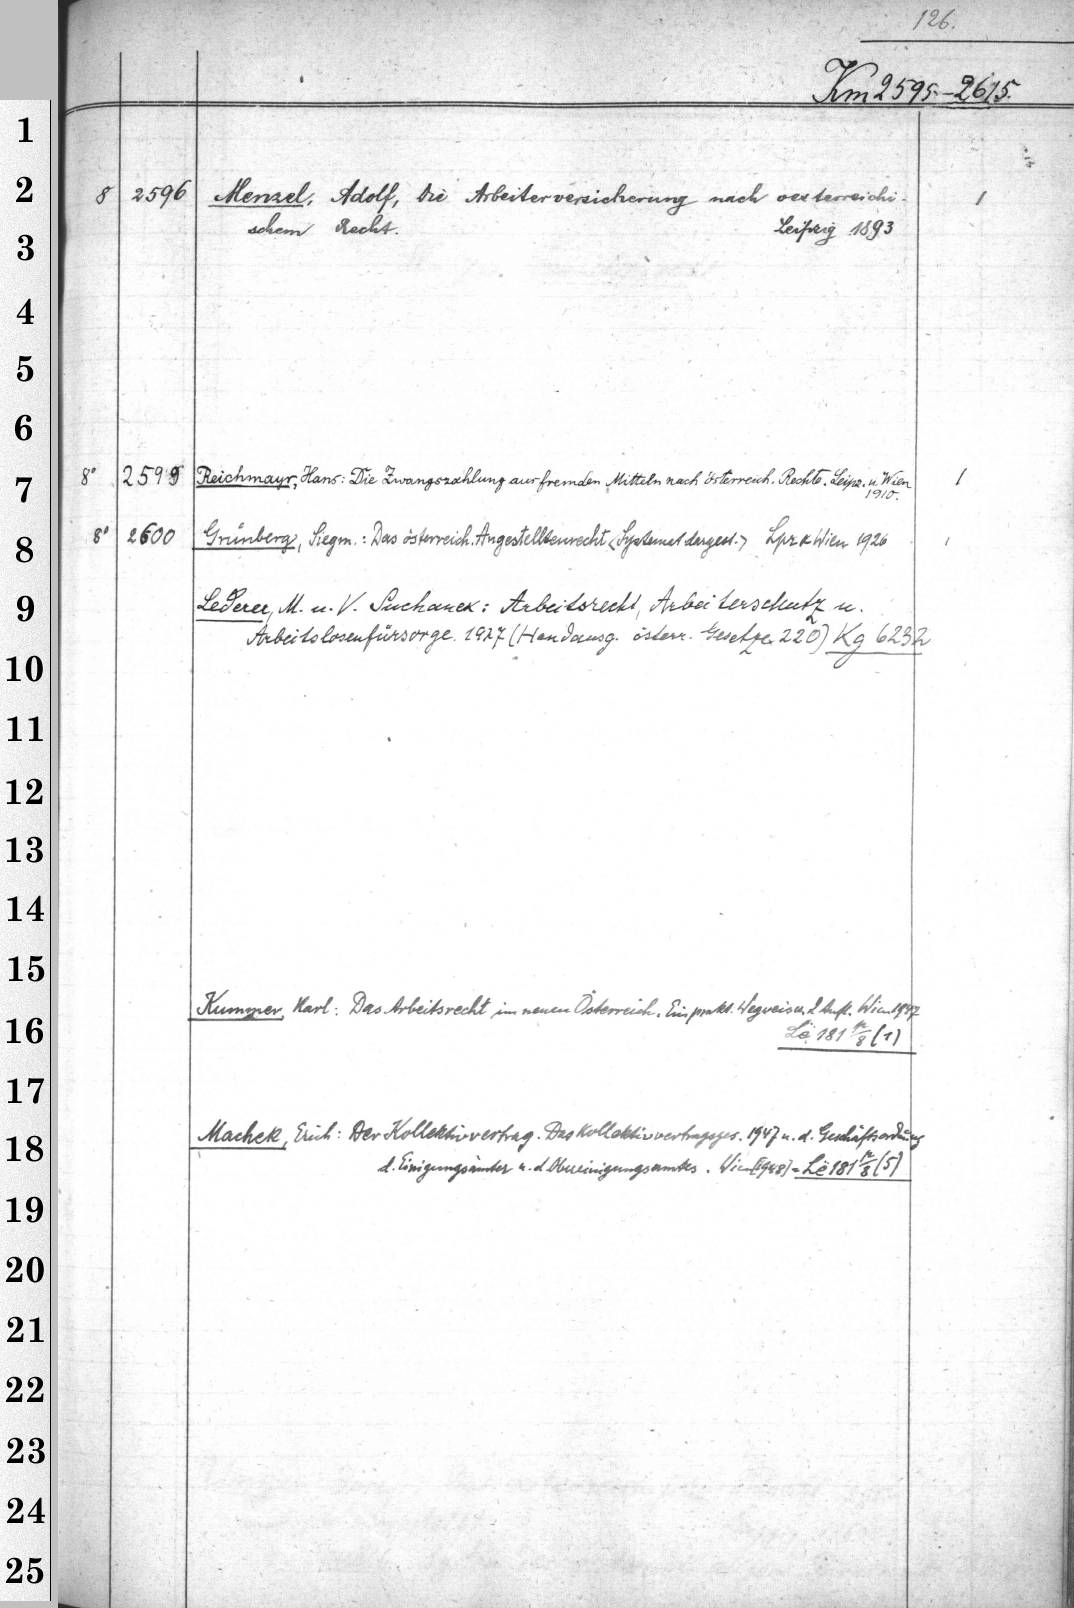 126.
Km 2595-2615.
1
2
8 2596 Menzel, Adolf, Die Arbeiterversicherung nach oesterreichi- 1
schem Recht. Leipzig 1893
3
4
5
6
7
8° 2599 Reichmayr, Hans: Die Zwangszahlung aus fremden Mitteln nach österreich. Rechte. Leipz. u. Wien 1
1910.
8° 2600 Grünberg, Siegm.: Das österreich. Angestelltenrecht <Systemat. dargest.> Lpz & Wien 1926 1
8
9
Lederer, M. u. V. Suchanek: Arbeitsrecht, Arbeiterschutz u.
Arbeitslosenfürsorge. 1927 (Handausg. österr. Gesetze 220) Kg 6232
10
11
12
13
14
15
Kummer, Karl: Das Arbeitsrecht im neuen Österreich. Ein prakt. Wegweiser. 2 Aufl. Wien 1947
16
Lë 181 /8 (1)
17
Machek, Erich: Der Kollektivvertrag. Das Kollektivvertragsges. 1947 u. d. Geschäftsordnung
18
d. Einigungsämter u. d. Obereinigungsamtes. Wien [1948] = Lë 181 /8 (5)
19
20
21
22
23
24
25